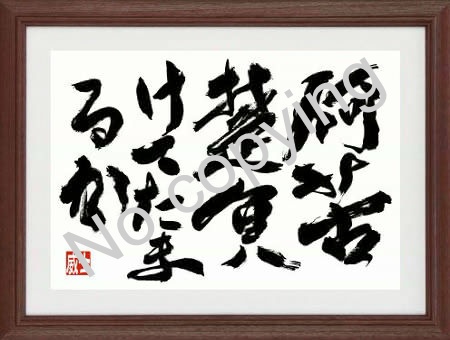 何苦
楚負
けてたま
るか
No copying